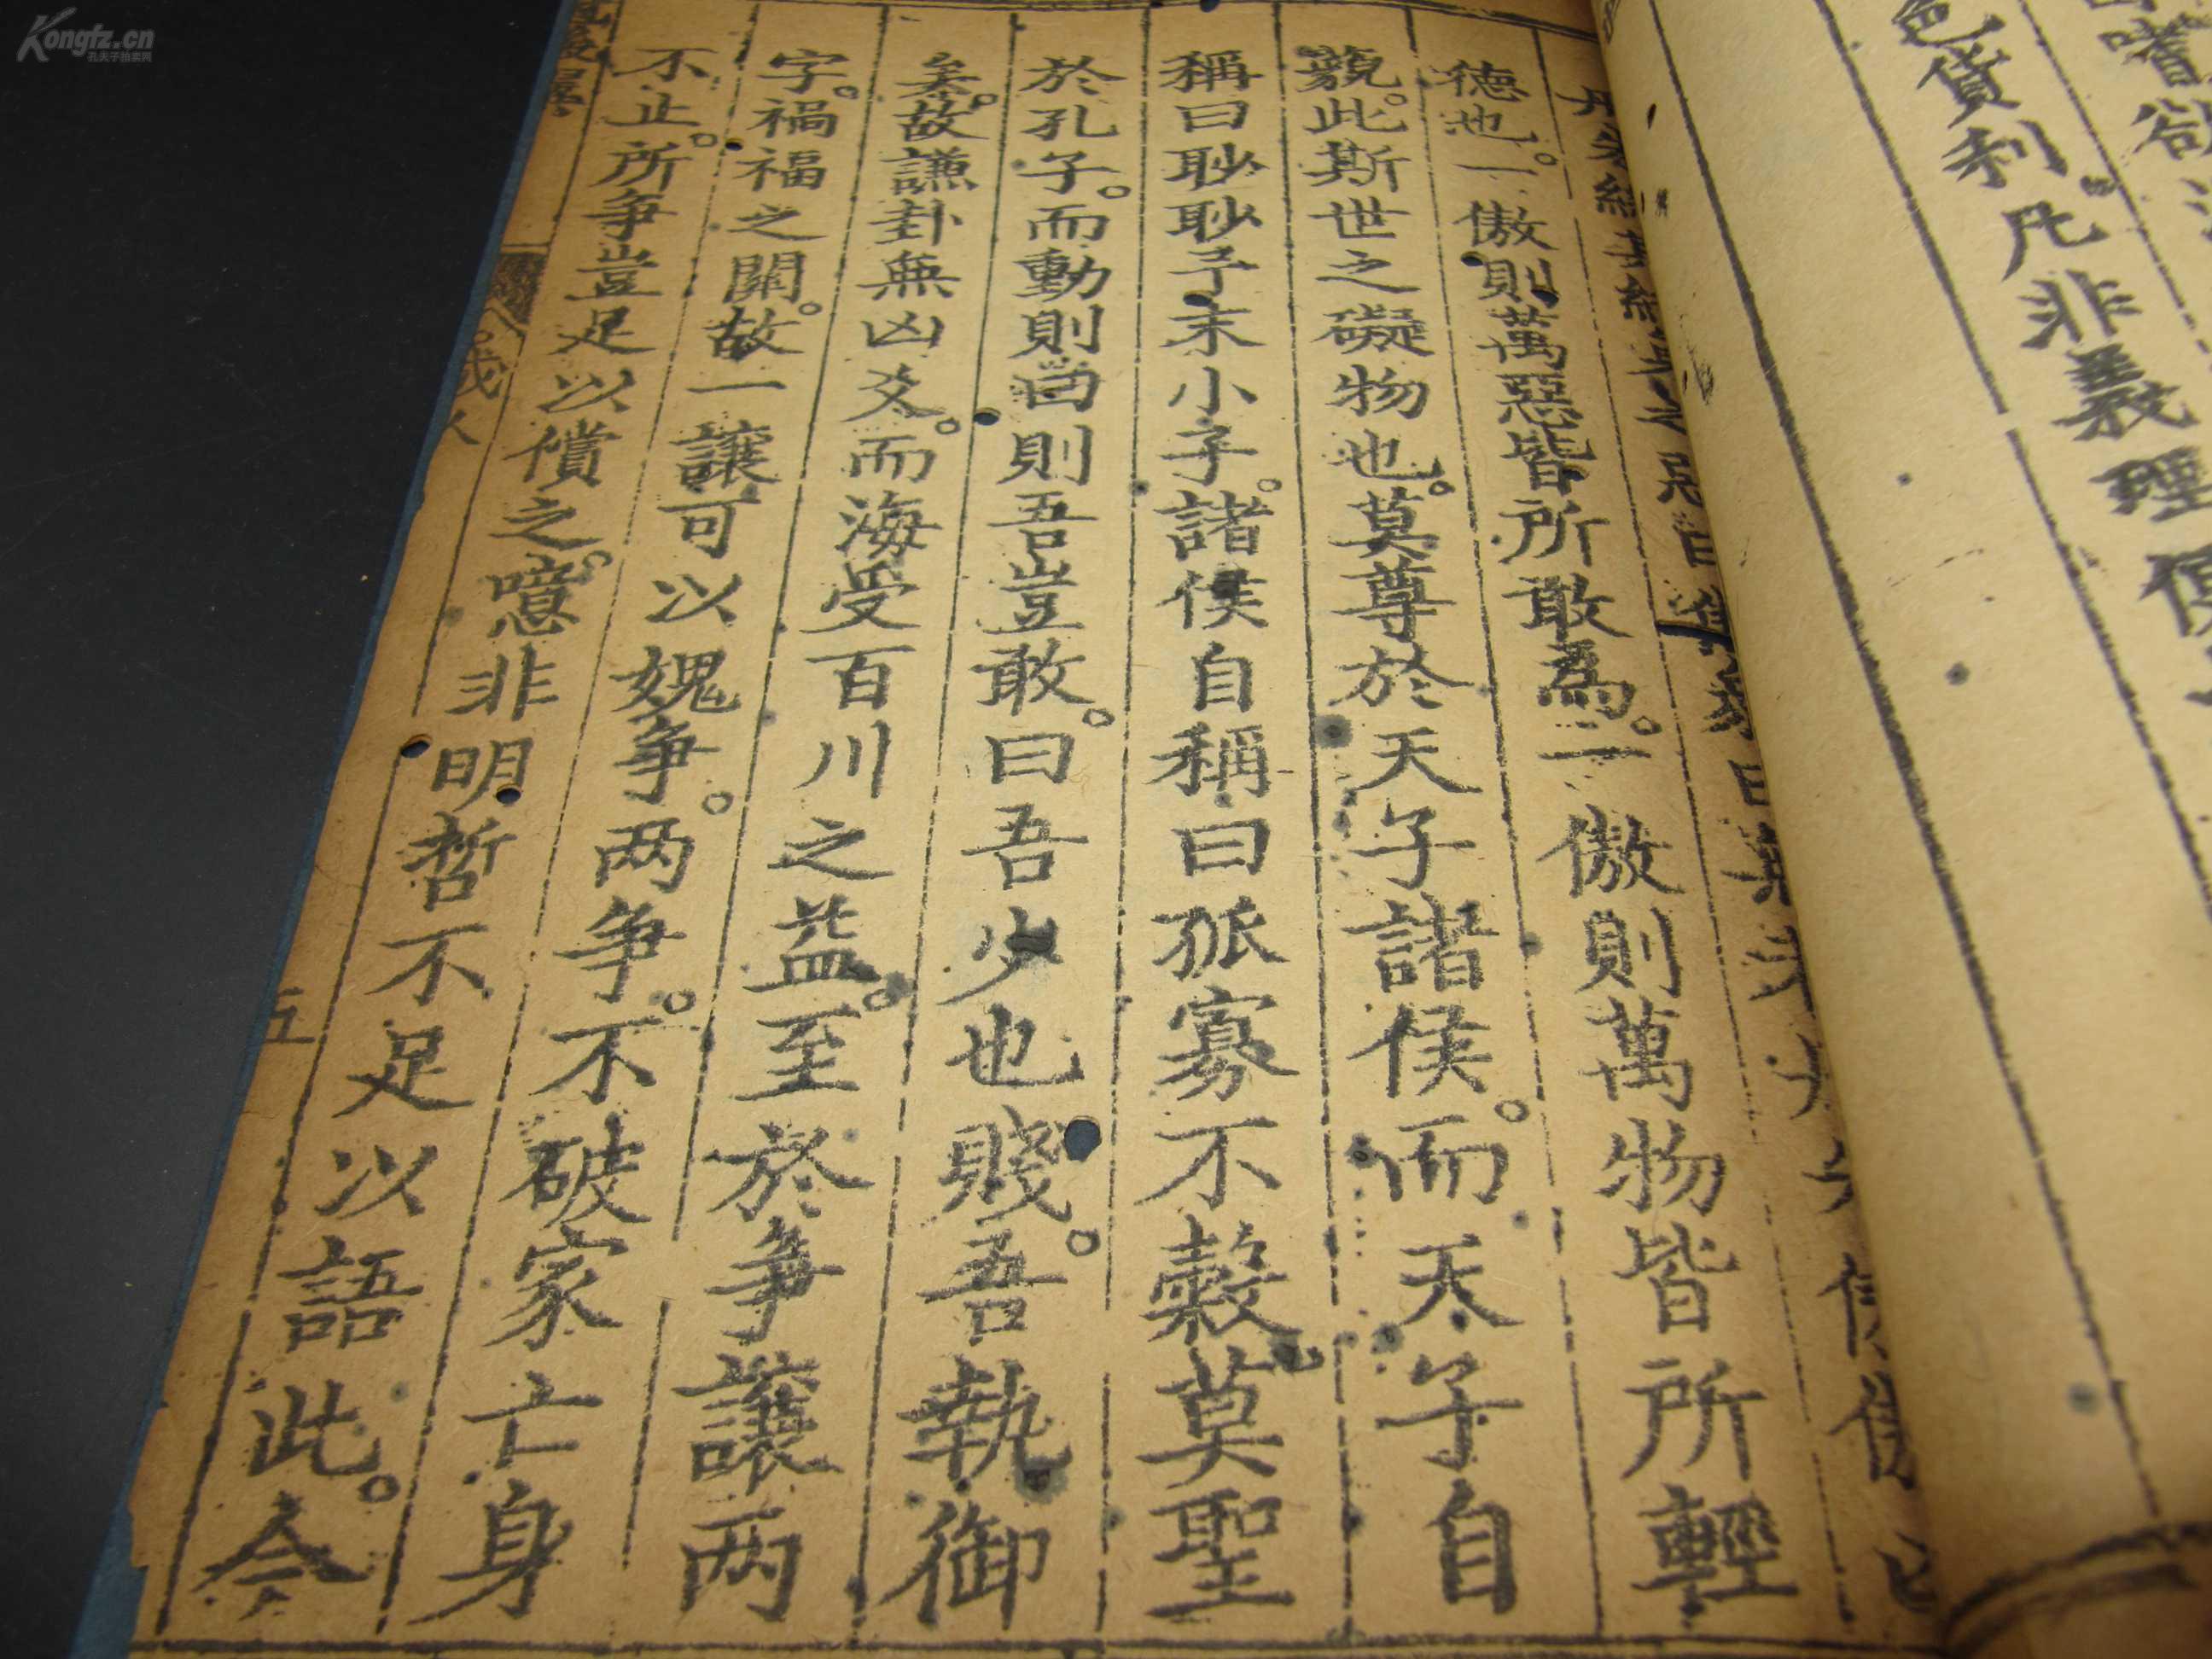 嗜欲
色貨利凡非義理
德也。一傲則萬惡皆所敢爲。一傲則萬物皆所輕
藐。此斯世之礙物也。莫尊於天子諸侯。而天子自
稱曰眇眇予末小子。諸侯自稱曰孤寡不穀。莫聖
於孔子。而動則曰則吾豈敢。曰吾少也賤。吾執御
矣。故謙卦無凶爻。而海受百川之益。至於爭讓兩
字。禍福之關。故一讓可以媿爭。两爭。不破家亡身
不止。所爭豈足以償之。噫非明哲不足以語此。今
五
Kongfz.cn
孔夫子拍卖网